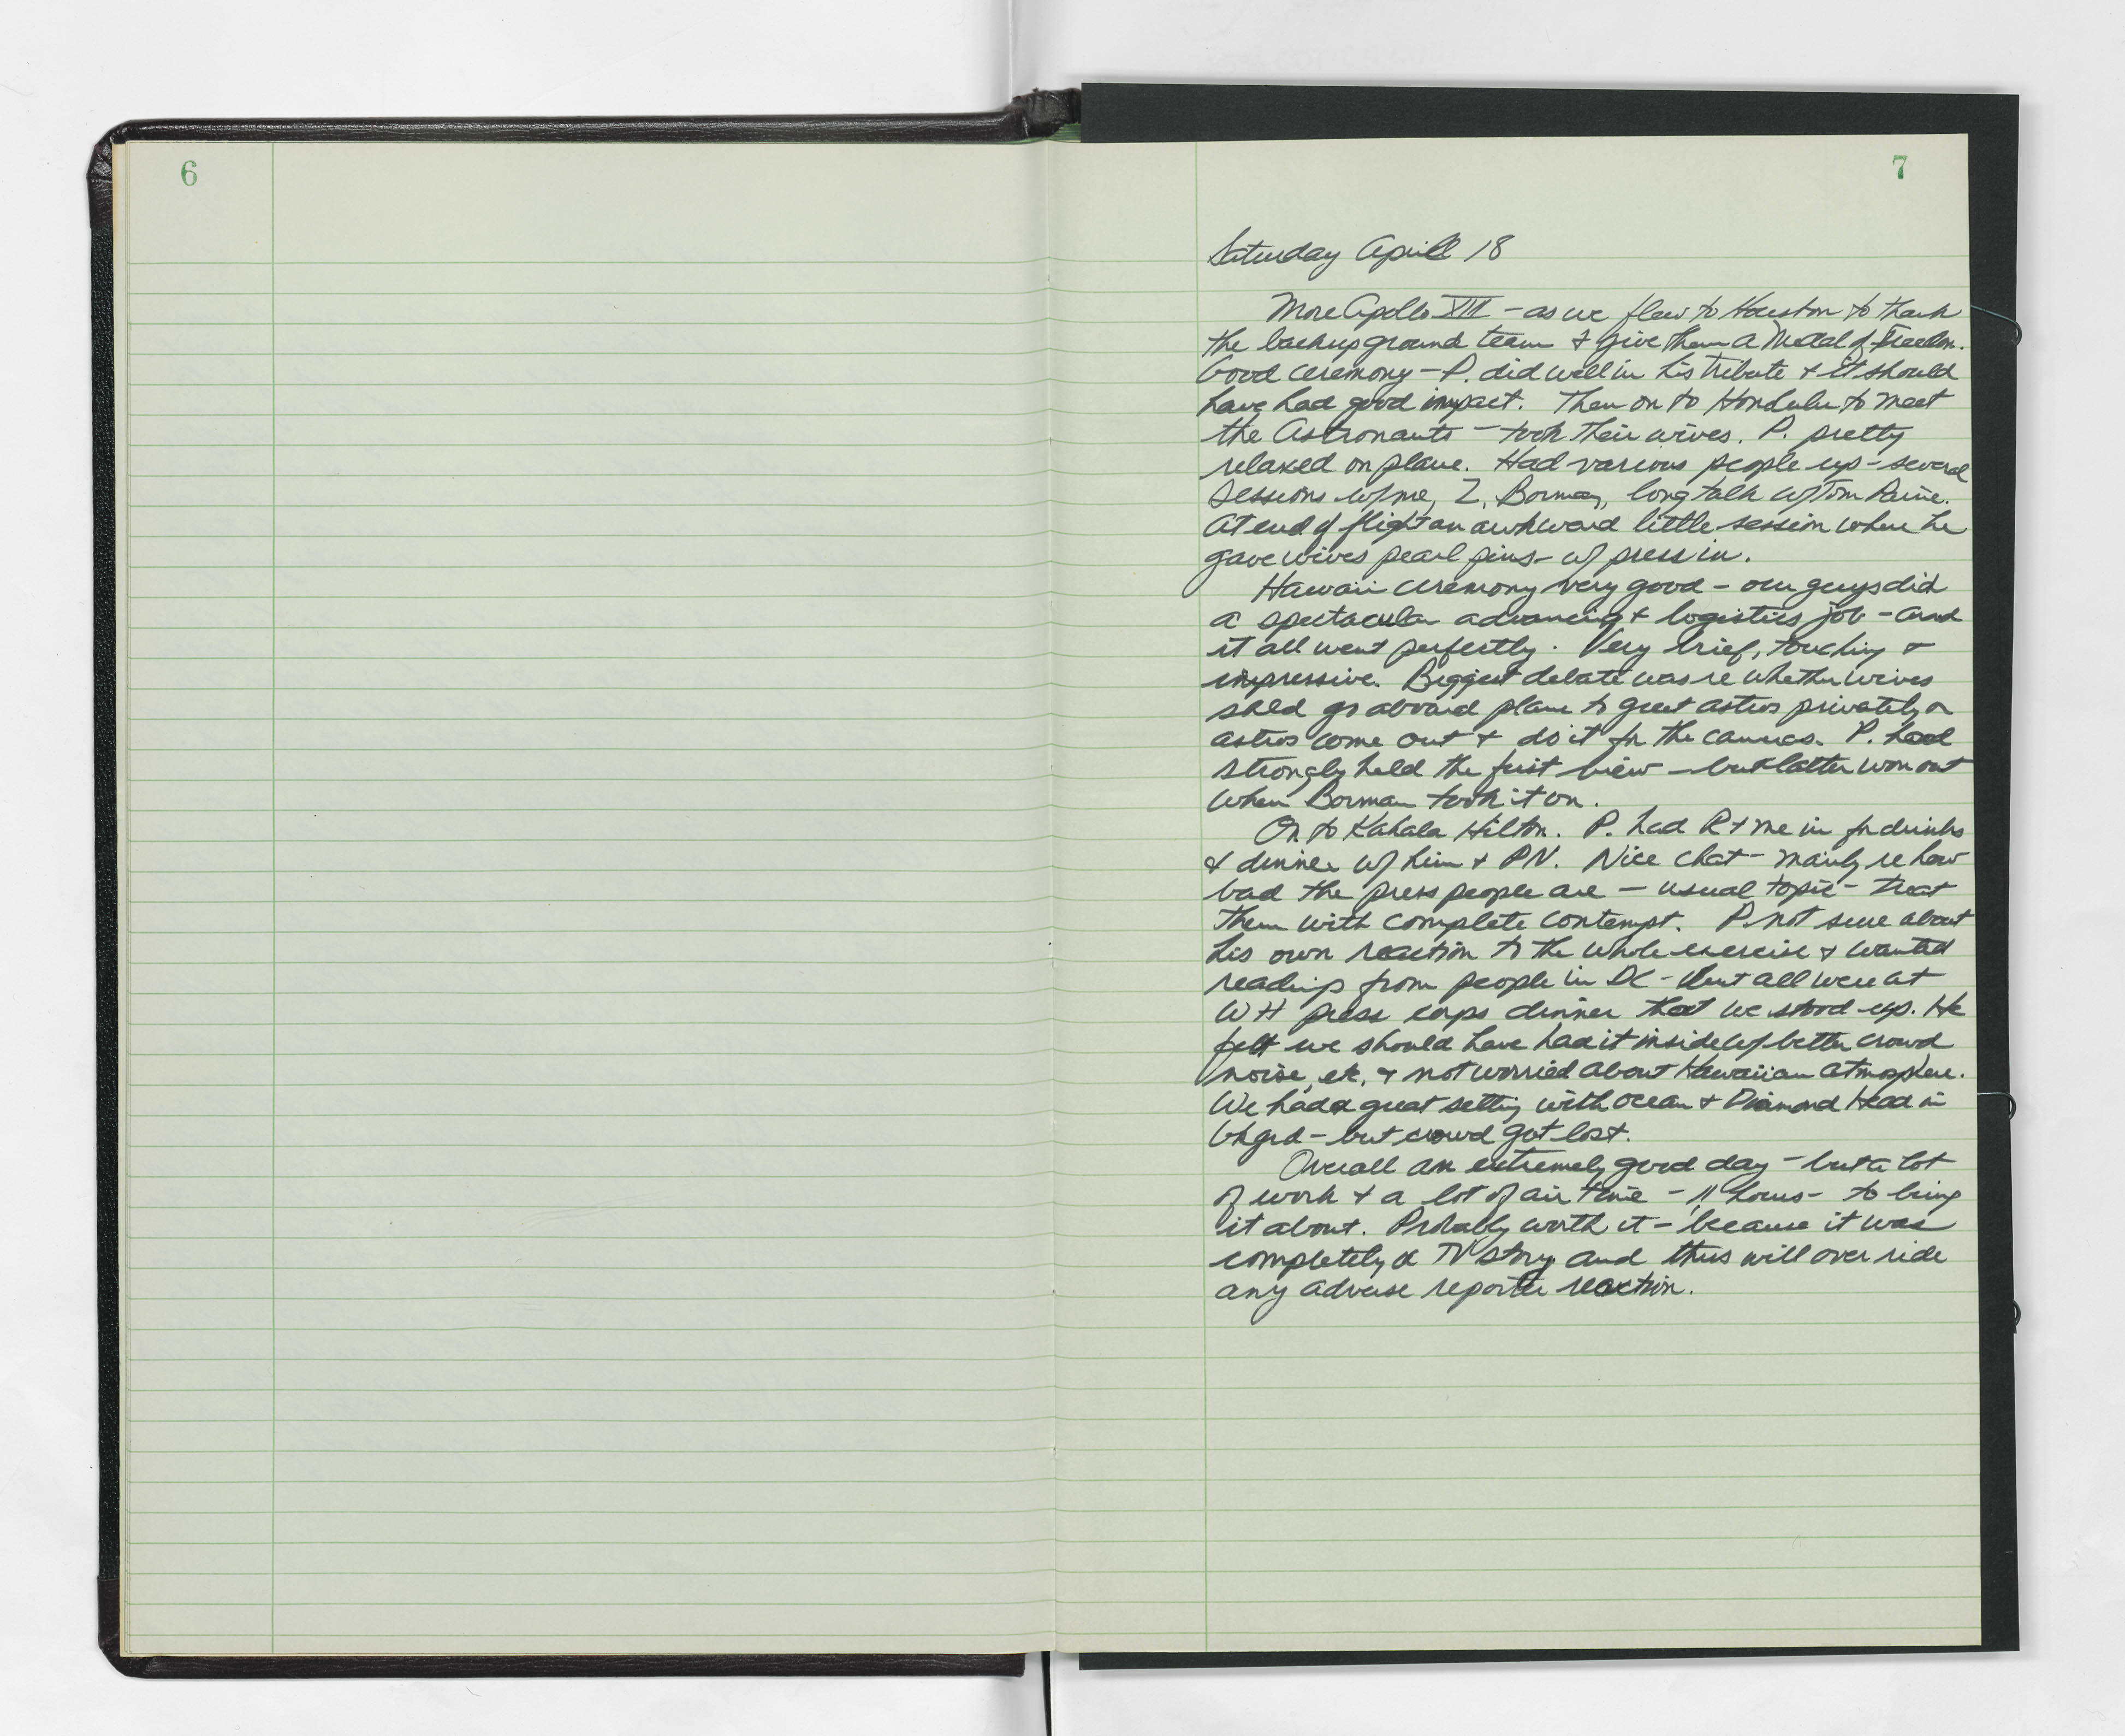 6
7
Saturday April 18
More Apollo XIII - as we flew to Houston to thank
the backup ground team & give them a Medal of Freedom.
Good ceremony - P. did well in his tribute & it should
have had good impact. Then on to Honolulu to meet
the Astronauts - took their wives. P. pretty
relaxed on plane. Had various people up - several
sessions w/me, Z, Borman, long talk w/Tom Paine.
At end of flight an awkward little session where he
gave wives pearl pins - w/ press in.
Hawaii ceremony very good - our guys did
a spectacular advancing & logistics job - and
it all went perfectly. Very brief, touching &
impressive. Biggest debate was re whether wives
shld go aboard plane to greet astros privately or
astros come out & do it for the cameras. P. had
strongly held the first view - but latter won out
when Borman took it on.
On to Kahala Hilton. P. had R & me in for drinks
& dinner w/ him & PN. Nice chat - mainly re how
bad the press people are - usual topic - treat
them with complete contempt. P. not sure about
his own reaction to the whole exercise & wanted
readings from people in DC - but all were at
WH press corps dinner that we stood up. He
felt we should have had it inside w/ better crowd
noise, etc. & not worried about Hawaiian atmosphere.
We had a great setting with ocean & Diamond Head in
bkgrd - but crowd got lost.
Overall an extremely good day - but a lot
of work & a lot of air time - 11 hours - to bring
it about. Probably worth it - because it was
completely a TV story and thus will over ride
any adverse reporter reaction.